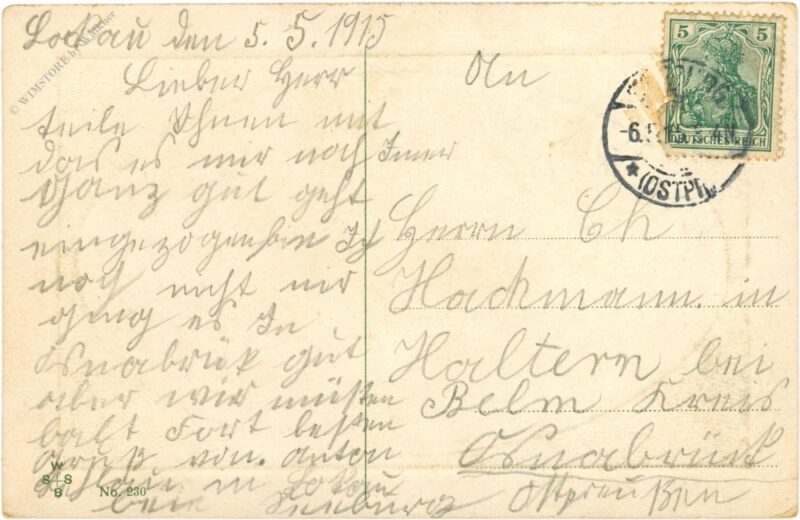 Lockau den 5. 5. 1915
Lieber Herr
teile Ihnen mit
das es mir noch Imer
Ganz gut geht
eingezogen bin Ich
noch nicht mir
ging es In
Osnabrük gut
aber wir müßen
balt Fort besten
Gruß von Anton
in Lokau
bei
An
Herrn Ch
Hackmann in
Haltern bei
Belm Kreis
Osnabrück
Ostpreußen
5 5
DEUTSCHES REICH
-6.5.15
* (OSTPR)
W
S S
B
No. 230
© WIMSTORE by W. Melcher